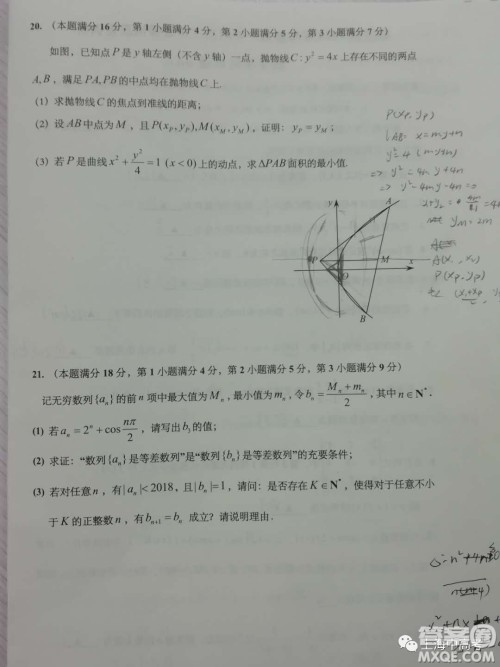 20. （本题满分 16 分，第 1 小题满分 4 分，第 2 小题满分 5 分，第 3 小题满分 7 分）
如图，已知点 P 是 y 轴左侧（不含 y 轴）一点，抛物线 C: y² = 4x 上存在不同的两点
A, B，满足 PA, PB 的中点均在抛物线 C 上.
(1) 求抛物线 C 的焦点到准线的距离；
(2) 设 AB 中点为 M，且 P(x_P, y_P), M(x_M, y_M)，证明：y_P = y_M；
(3) 若 P 是曲线 x² + y²/4 = 1 (x < 0) 上的动点，求 ΔPAB 面积的最小值.
P(xp, yp)
LAB: x=my+n
y²=4(my+n)
⇒ y² = 4my+4n
⇒ y²-4my-4n=0
yM=2m
P(xp, yp)
y
A
P
O
M
x
B
21. （本题满分 18 分，第 1 小题满分 4 分，第 2 小题满分 5 分，第 3 小题满分 9 分）
记无穷数列{a_n}的前 n 项中最大值为 M_n，最小值为 m_n，令 b_n = (M_n + m_n)/2，其中 n ∈ N*.
(1) 若 a_n = 2ⁿ + cos nπ/2，请写出 b₃ 的值；
(2) 求证：“数列{a_n}是等差数列”是“数列{b_n}是等差数列”的充要条件；
(3) 若对任意 n，有 |a_n| < 2018，且 |b_n| = 1，请问：是否存在 K ∈ N*，使得对于任意不小
于 K 的正整数 n，有 b_{n+1} = b_n 成立？请说明理由.
答案圈
MXQE.COM